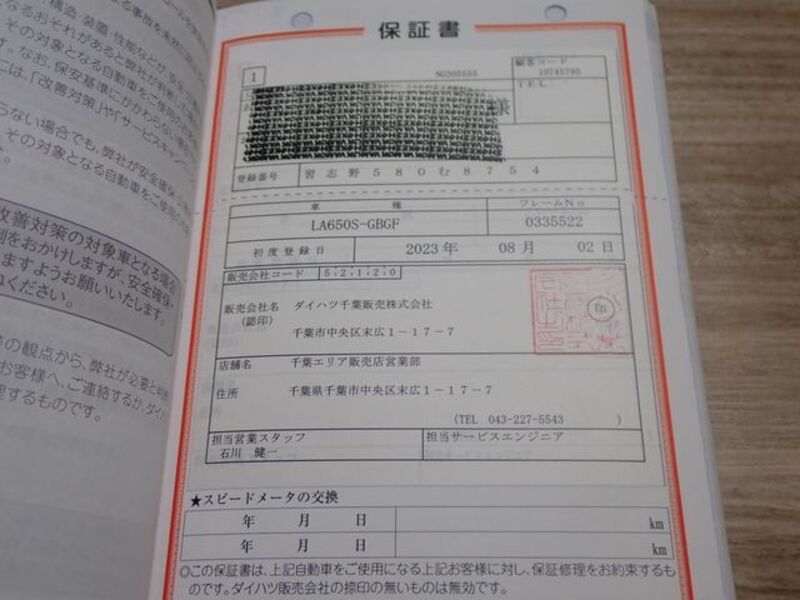 構造・装置・性能などが、
その対象となる自動車をご使用の
なお、保安基準にかかわらない
には、「改善対策」や「サービスキャン
らない場合でも、弊社が安全確保
その対象となる自動車をご使用の
改善対策の対象車となる場合
をおかけしますが、安全確保・
ますようお願いいたします。
ください。
の観点から、弊社が必要と判断
お客様へ、ご連絡するか、ダイ
するものです。
保証書
1
N0300555
顧客コード
19745795
TEL
様
登録番号 習志野580む8754
車種 フレームNo
LA650S-GBGF 0335522
初度登録日 2023年 08月 02日
販売会社コード 52120
販売会社名 ダイハツ千葉販売株式会社
(認印)
千葉市中央区末広1-17-7
印
店舗名 千葉エリア販売店営業部
住所 千葉県千葉市中央区末広1-17-7
(TEL 043-227-5543 )
担当営業スタッフ 担当サービスエンジニア
石川 健一
★スピードメータの交換
年 月 日 km
年 月 日 km
◎この保証書は、上記自動車をご使用になる上記お客様に対し、保証修理をお約束するも
のです。ダイハツ販売会社の捺印の無いものは無効です。